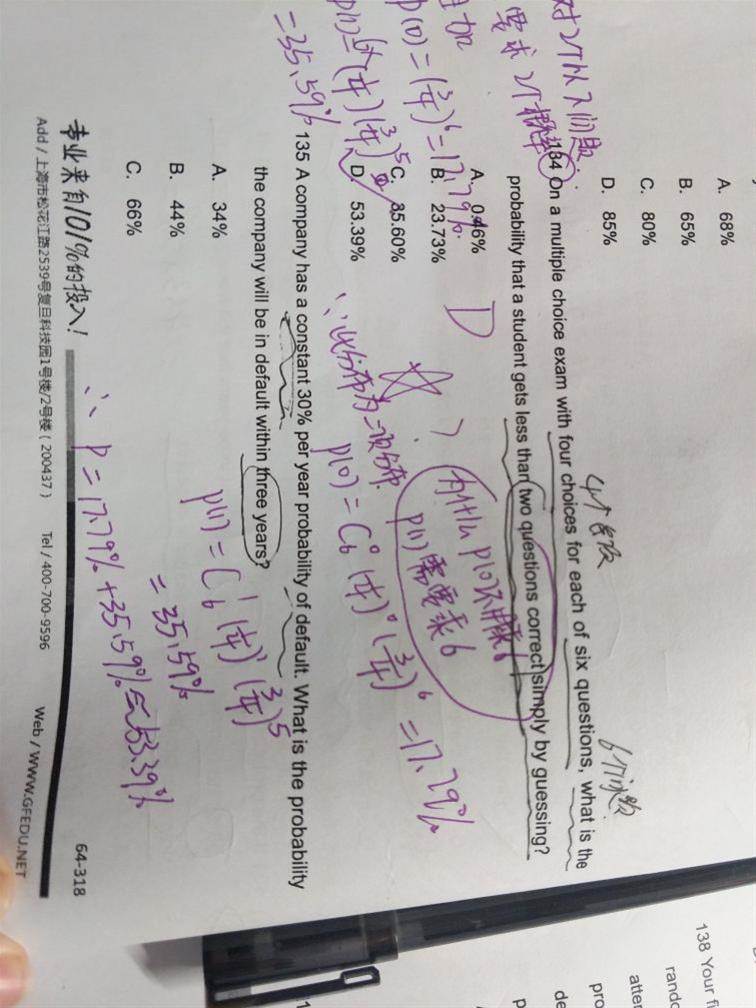 A. 68%
B. 65%
C. 80%
D. 85%
4个答案
6个问题
134 On a multiple choice exam with four choices for each of six questions, what is the
probability that a student gets less than two questions correct simply by guessing?
A. 0.46%
B. 23.73%
C. 35.60%
D. 53.39%
D
为什么 p(0)不用乘6
p(1)需要乘6
p(0) = (3/4)^6 = 17.79%
= 35.59%
∵此分布为二项分布
p(0) = C_6^0 (1/4)^0 (3/4)^6 = 17.79%
p(1) = C_6^1 (1/4)^1 (3/4)^5
= 35.59%
∴ P = 17.79% + 35.59% = 53.39%
135 A company has a constant 30% per year probability of default. What is the probability
the company will be in default within three years?
A. 34%
B. 44%
C. 66%
专业来自101%的投入!
64-318
Add / 上海市松花江路2539号复旦科技园1号楼/2号楼 ( 200437 ) Tel / 400-700-9596 Web / WWW.GFEDU.NET
138 Your